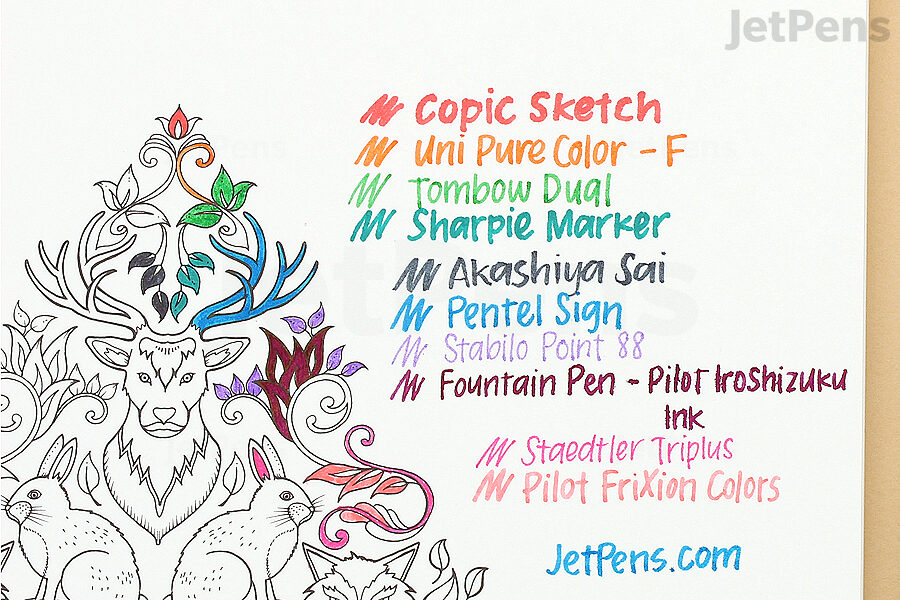 JetPens
Copic Sketch
Uni Pure Color - F
Tombow Dual
Sharpie Marker
Akashiya Sai
Pentel Sign
Stabilo Point 88
Fountain Pen - Pilot Iroshizuku
Ink
Staedtler Triplus
Pilot FriXion Colors
JetPens.com